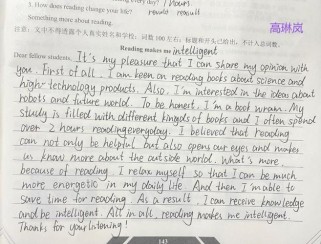 3. How does reading change your life?
Something more about reading.
高琳岚
注意: 文中不得透露个人真实姓名和学校。词数 100 左右; 标题和开头已给出, 不计入总词数。
Reading makes me intelligent
Dear fellow students, It's my pleasure that I can share my opinion with
you. First of all. I am keen on reading books about science and
high-technology products. Also. I'm interested in the ideas about
robots and future world. To be honest. I'm a book wram. My
study is filled with different kingds of books and I often spend
over 2 hours readingeveryday. I believed that reading
can not only be helpful but also opens our eyes and makes
us know more about the outside world. What's more.
because of reading. I relax myself so that I can be much
more energetic in my daily life. And then I'm able to
save time for reading. As a result. I can receive knowledge
and be intelligent. All in all. reading makes me intelligent.
Thanks for your listening!
143